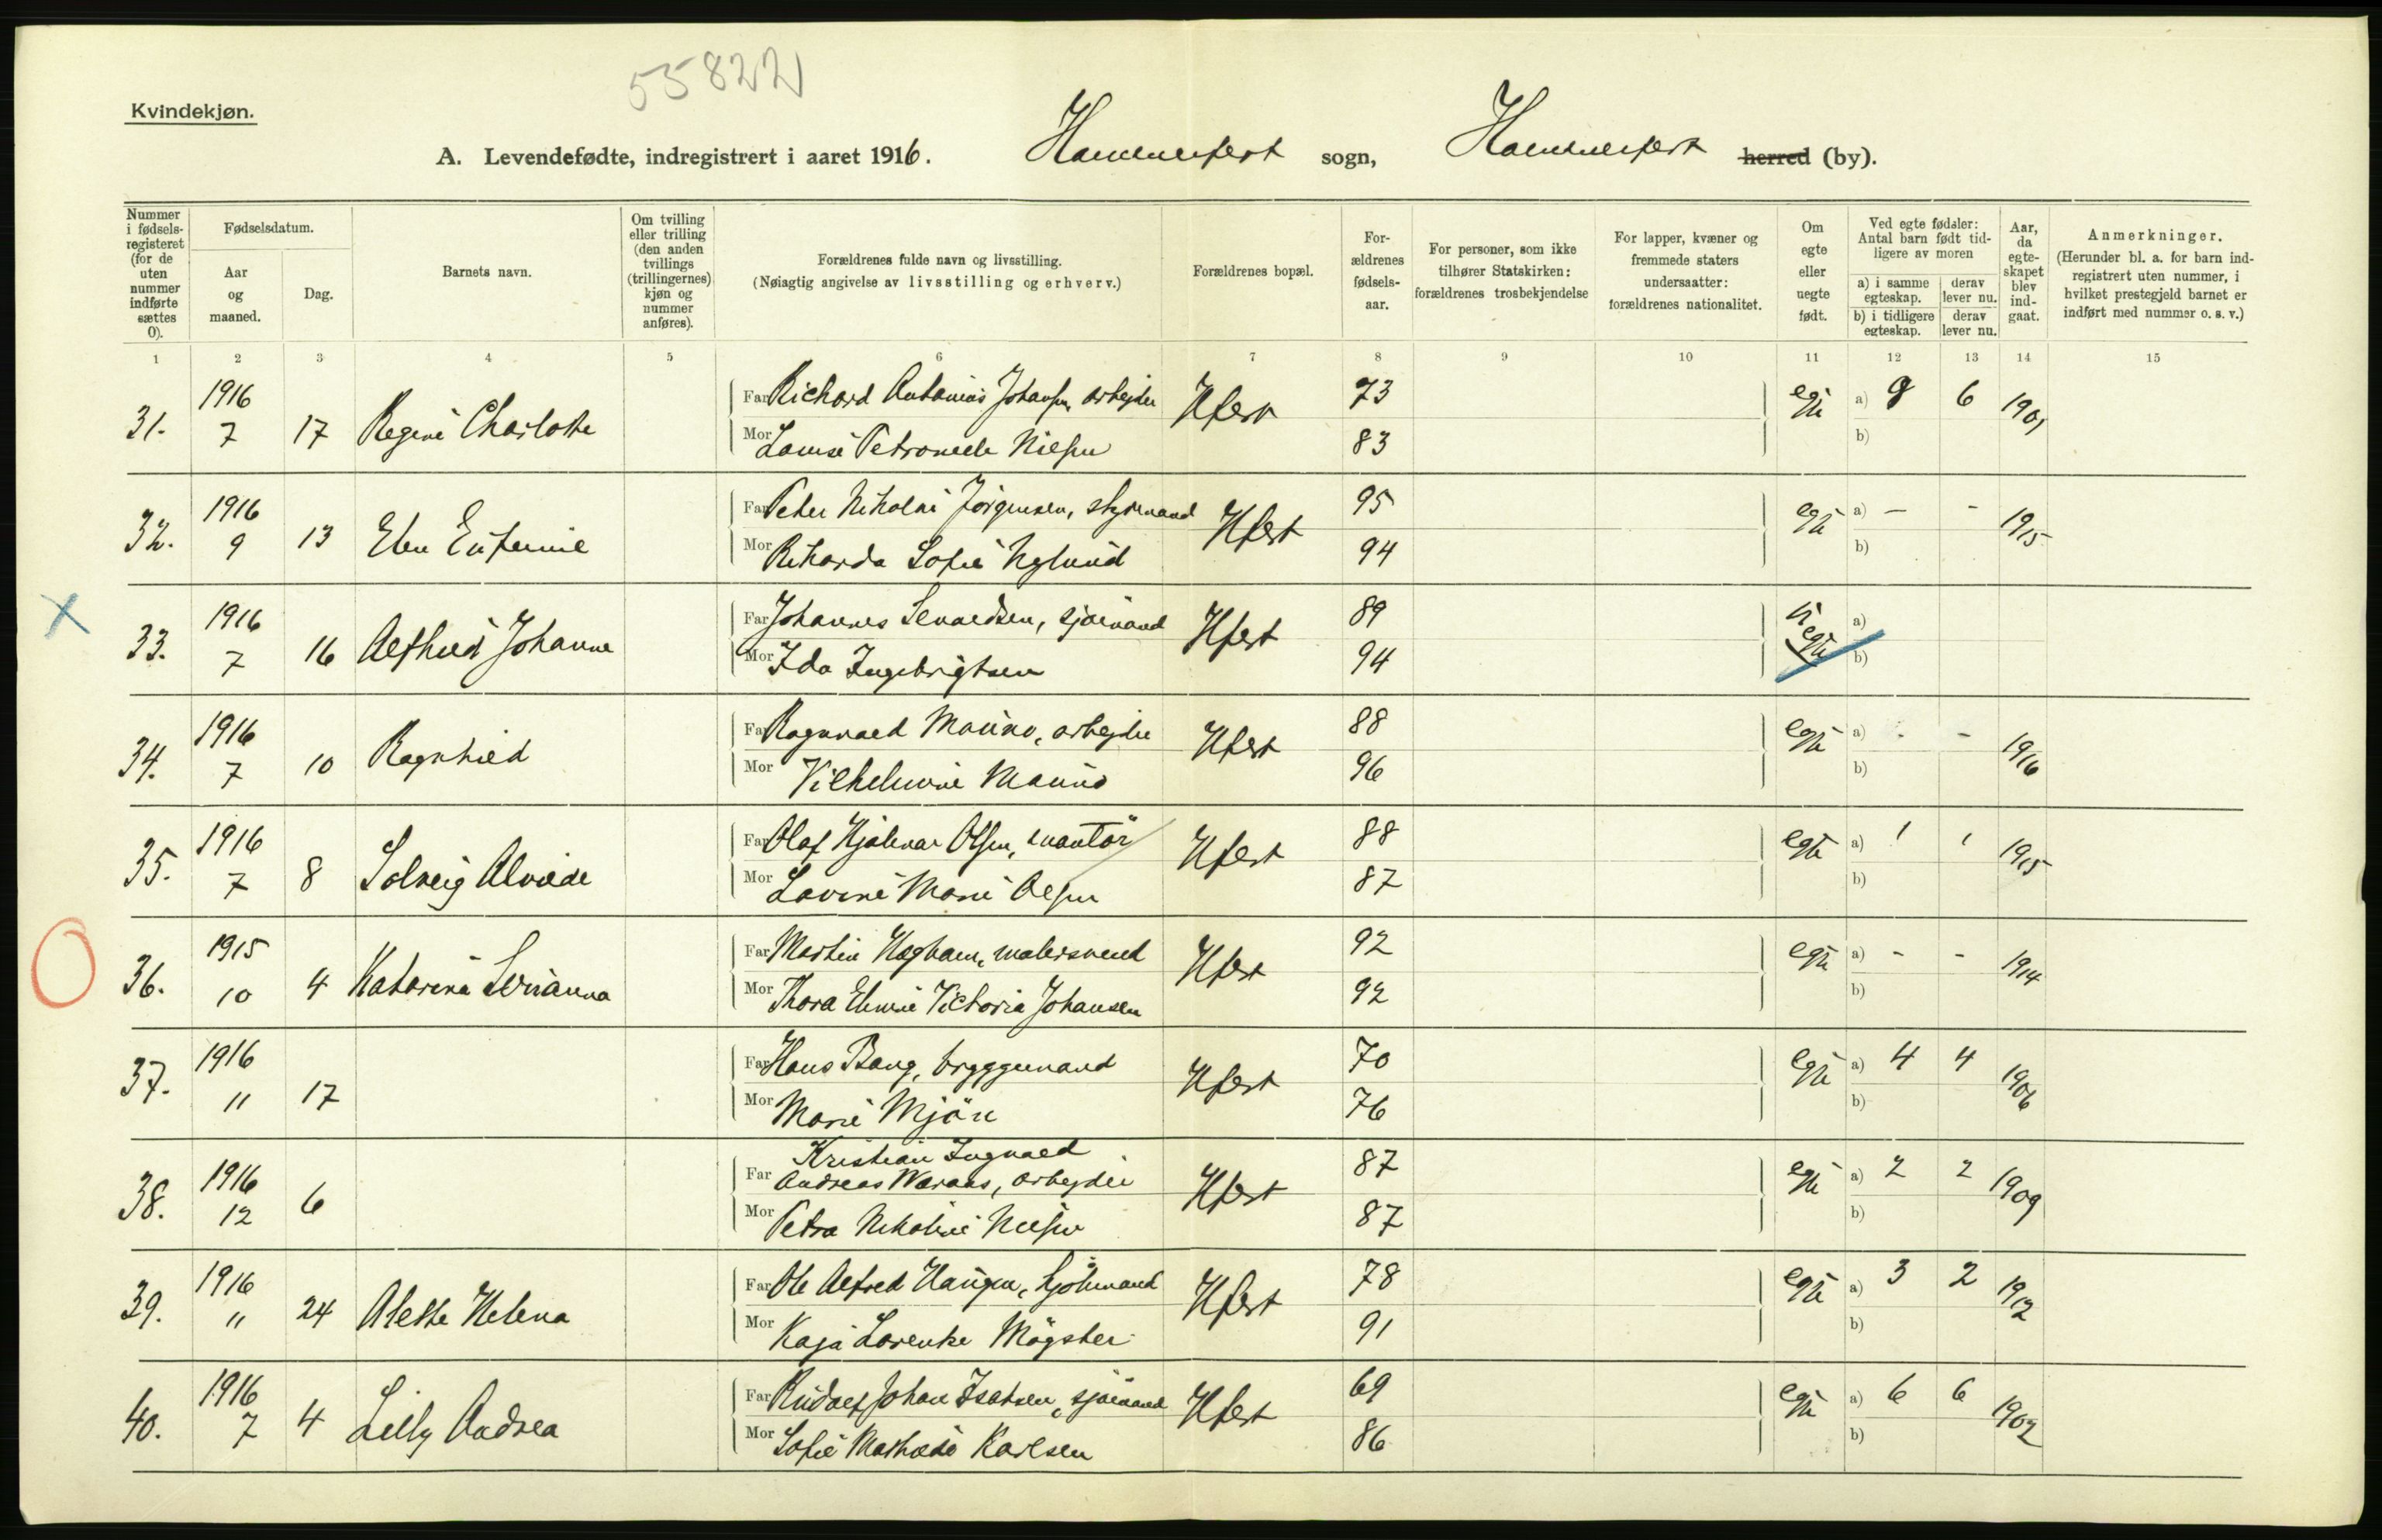 55822
Kvindekjøn.
A. Levendefødte, indregistrert i aaret 1916. Hammerfest sogn, Hammerfest herred (by).
Nummer i fødselsregisteret (for de uten nummer indførte sættes 0).
Fødselsdatum.
Aar og maaned.
Dag.
Barnets navn.
Om tvilling eller trilling (den anden tvillings (trillingernes) kjøn og nummer anføres).
Forældrenes fulde navn og livsstilling.
(Nøiagtig angivelse av livsstilling og erhverv.)
Forældrenes bopæl.
Forældrenes fødselsaar.
For personer, som ikke tilhører Statskirken: forældrenes trosbekjendelse
For lapper, kvæner og fremmede staters undersaatter: forældrenes nationalitet.
Om egte eller uegte født.
Ved egte fødsler: Antal barn født tidligere av moren
a) i samme egteskap. derav lever nu.
b) i tidligere egteskap. derav lever nu.
Aar, da egteskapet blev indgaat.
Anmerkninger.
(Herunder bl. a. for barn indregistrert uten nummer, i hvilket prestegjeld barnet er indført med nummer o. s. v.)
1 2 3 4 5 6 7 8 9 10 11 12 13 14 15
31. 1916 7 17 Regine Charlotte
Far Richard Antonius Johansen, arbejder Hfest 73 egte a) 8 6 1901
Mor Lovise Petronelle Nilsen 83 b)
32. 1916 9 13 Elen Eufemie
Far Peter Nikolai Jørgensen, styrmand Hfest 95 egte a) - - 1915
Mor Rikarda Sofie Nylund 94 b)
33. 1916 7 16 Alfhild Johanne
Far Johannes Sivaldsen, sjømand Hfest 89 uegte a)
Mor Ida Ingebrigtsen 94 b)
34. 1916 7 10 Ragnhild
Far Ragnvald Mauno, arbejder Hfest 88 egte a) - - 1916
Mor Vilhelmine Mauno 96 b)
35. 1916 7 8 Solveig Alvilde
Far Olaf Hjalmar Olsen, montör Hfest 88 egte a) 1 1 1915
Mor Lovine Marie Olsen 87 b)
36. 1915 10 4 Katarina
Far Martin malersvend Hfest 92 egte a) - - 1914
Mor Thora Elmine Victoria Johansen 92 b)
37. 1916 11 17
Far Hans Bang, bryggemand Hfest 70 egte a) 4 4 1906
Mor Marie Mjön 76 b)
38. 1916 12 6
Far Kristian Ingvald
Andreas arbejder Hfest 87 egte a) 2 2 1909
Mor Petra Nikoline Nilsen 87 b)
39. 1916 11 24 Alette Helena
Far Ole Alfred Hansen, sjömand Hfest 78 egte a) 3 2 1912
Mor Kaja Lorentze Mögster 91 b)
40. 1916 7 4 Lilly Andrea
Far Rudolf Johan Isaksen, sjömand Hfest 69 egte a) 6 6 1902
Mor Sofie Mathilde Karlsen 86 b)